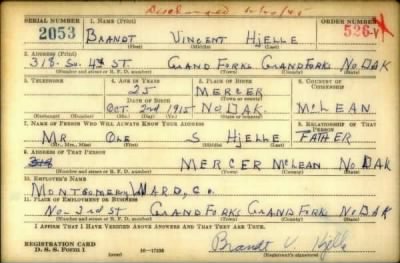 Discharged
SERIAL NUMBER 1. NAME (Print) ORDER NUMBER
2053 BRANDT VINCENT HJELLE 526-V
(First) (Middle) (Last)
2. ADDRESS (Print)
318-So. 4th ST. GRAND FORKS GRAND FORKS NO. DAK
(Number and street or R. F. D. number) (Town) (County) (State)
3. TELEPHONE 4. AGE IN YEARS 5. PLACE OF BIRTH 6. COUNTRY OF CITIZENSHIP
25 MERCER
DATE OF BIRTH (Town or county)
OCT. 2nd 1915 NO. DAK. McLEAN
(Mo.) (Day) (Yr.) (State or country)
7. NAME OF PERSON WHO WILL ALWAYS KNOW YOUR ADDRESS 8. RELATIONSHIP OF THAT PERSON
MR OLE S HJELLE FATHER
(Mr., Mrs., Miss) (First) (Middle) (Last)
9. ADDRESS OF THAT PERSON
MERCER McLEAN NO DAK
(Number and street or R. F. D. number) (Town) (County) (State)
10. EMPLOYER'S NAME
MONTGOMERY WARD, CO.
11. PLACE OF EMPLOYMENT OR BUSINESS
NO. 3rd ST GRAND FORKS GRAND FORKS NO DAK
(Number and street or R. F. D. number) (Town) (County) (State)
I AFFIRM THAT I HAVE VERIFIED ABOVE ANSWERS AND THAT THEY ARE TRUE.
REGISTRATION CARD
D. S. S. Form 1 Brandt V. Hjelle
(Registrant's signature)